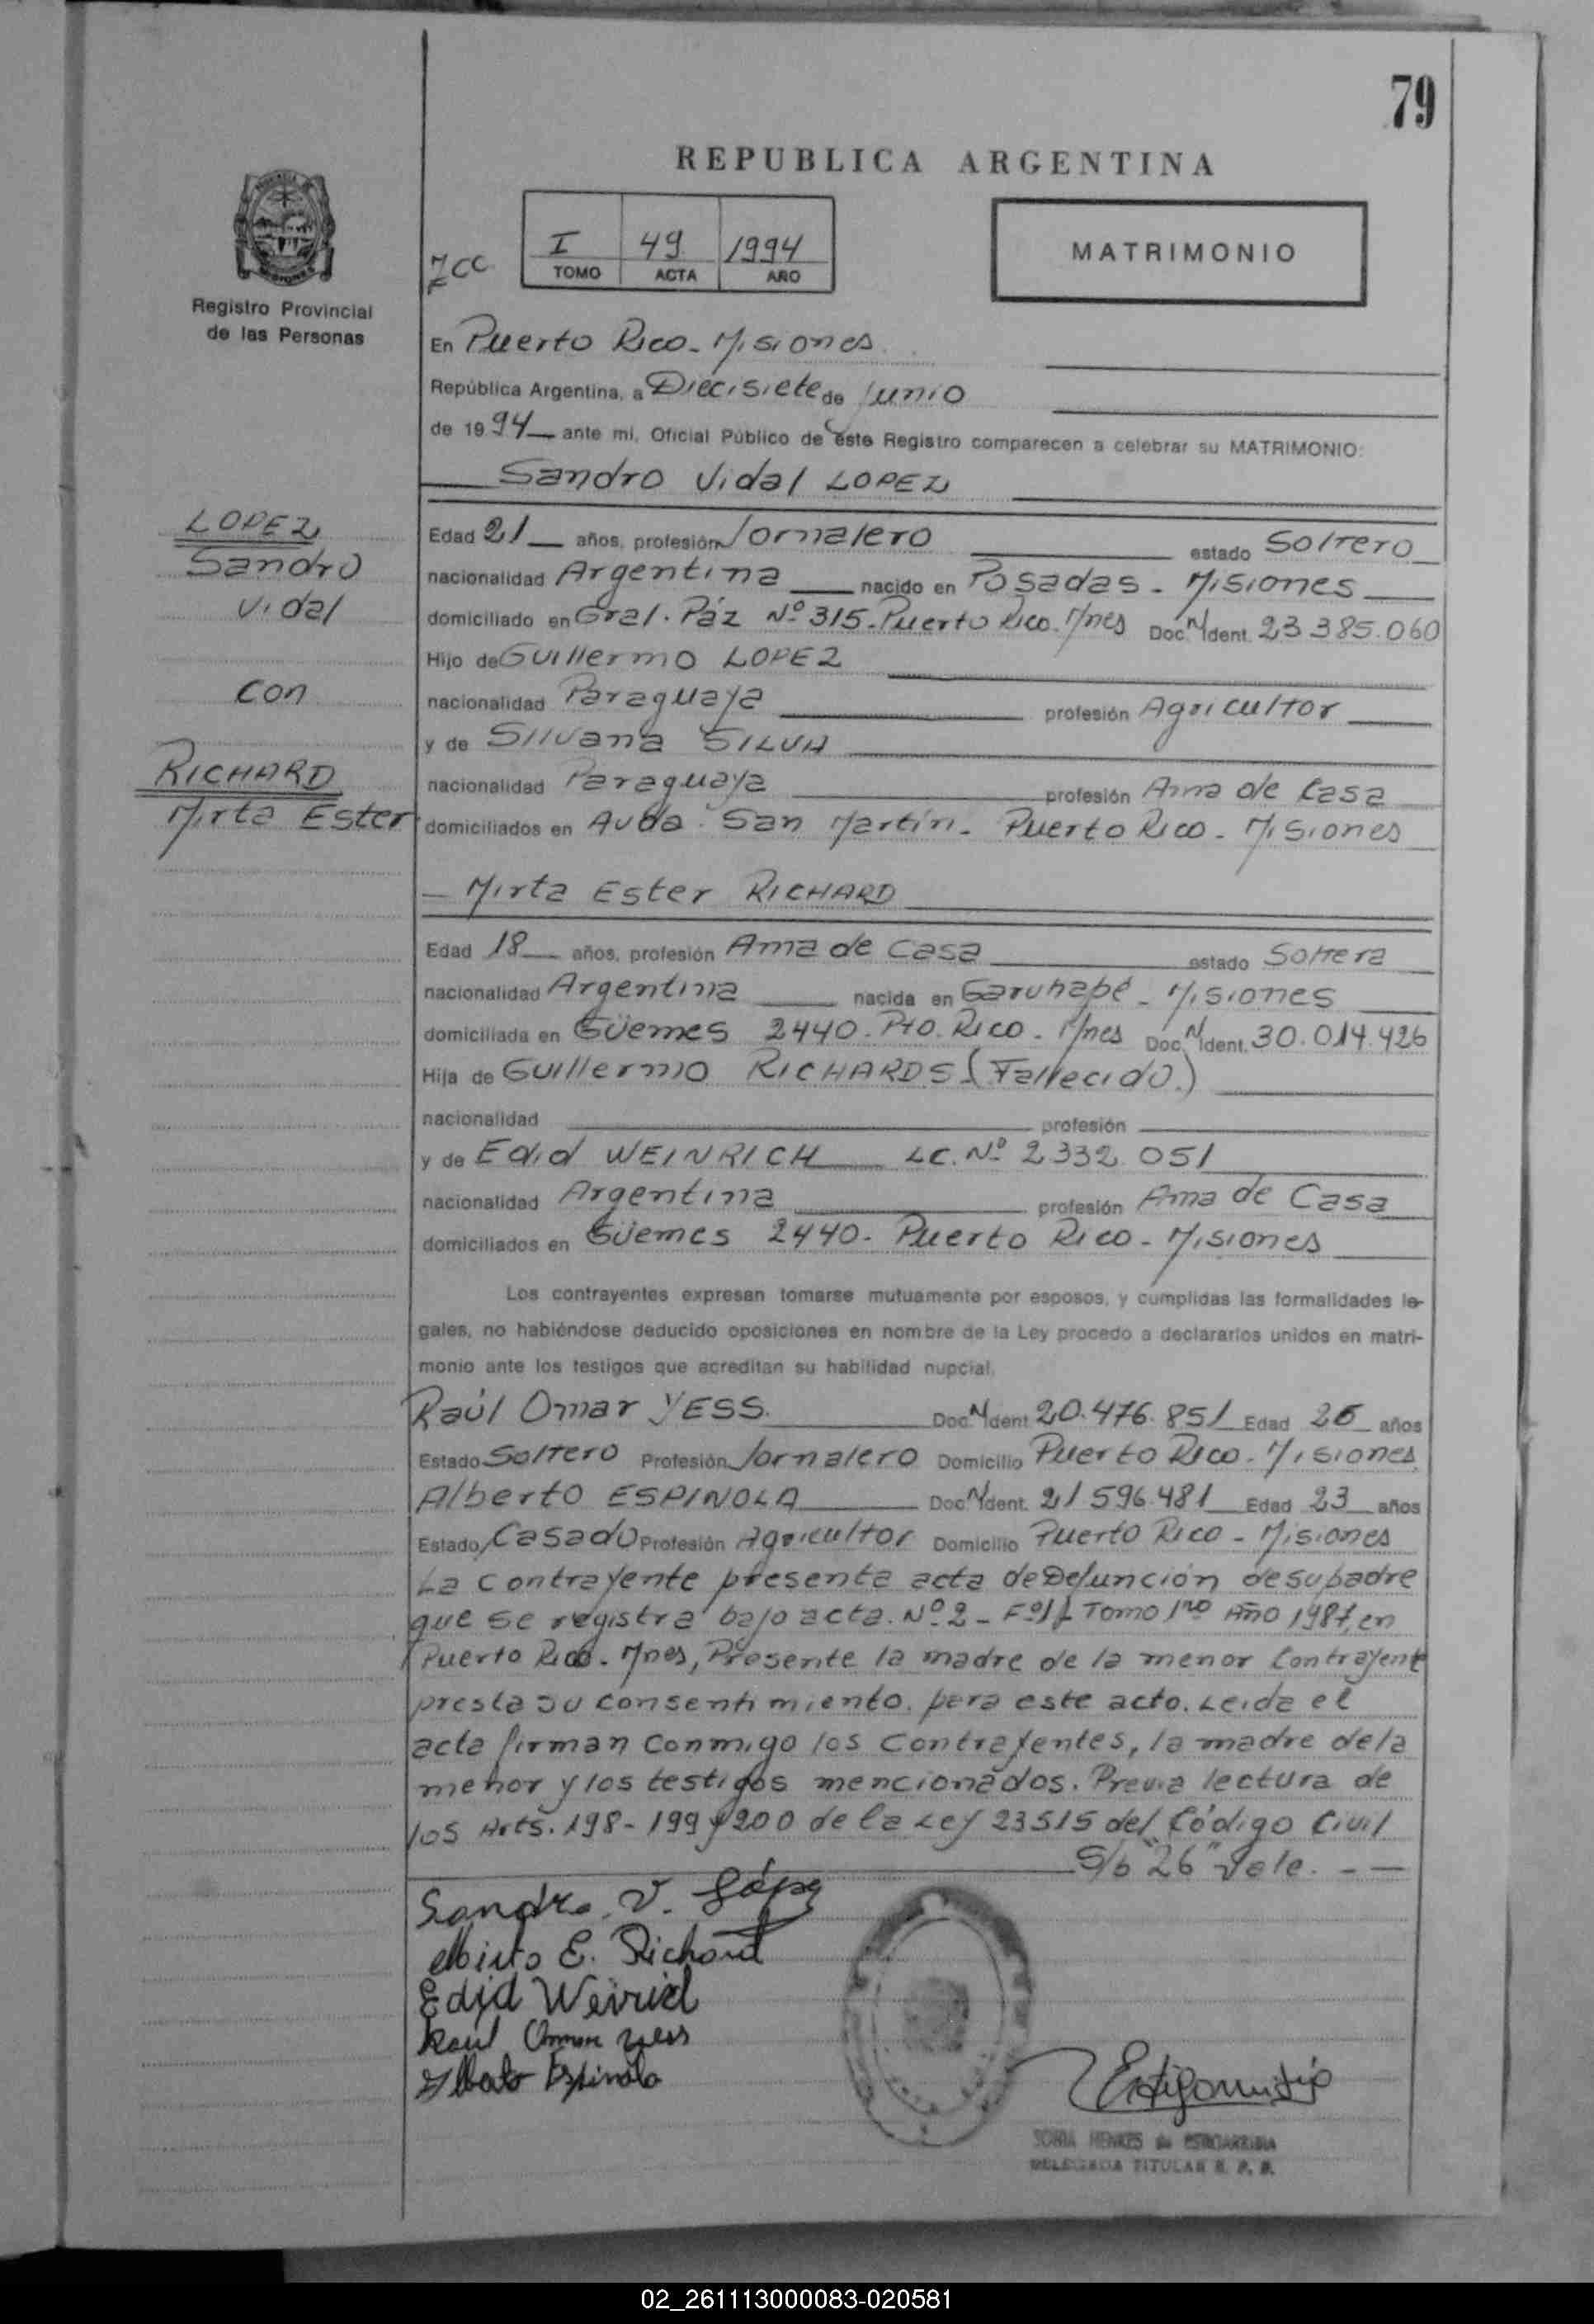 79
REPUBLICA ARGENTINA
I 49 1994
TOMO ACTA AÑO
MATRIMONIO
Registro Provincial
de las Personas
En Puerto Rico - Misiones
República Argentina, a Diecisiete de Junio
de 1994 ante mi, Oficial Público de este Registro comparecen a celebrar su MATRIMONIO:
Sandro Vidal LOPEZ
LOPEZ
Sandro
Vidal
con
RICHARD
Mirta Ester
Edad 21 años, profesión Jornalero estado Soltero
nacionalidad Argentina nacido en Posadas - Misiones
domiciliado en Gral. Páz Nº 315 - Puerto Rico. Mnes Doc. N Ident. 23 385.060
Hijo de Guillermo LOPEZ
nacionalidad Paraguaya profesión Agricultor
y de Silvana SILVA
nacionalidad Paraguaya profesión Ama de Casa
domiciliados en Avda. San Martín - Puerto Rico - Misiones
Mirta Ester RICHARD
Edad 18 años, profesión Ama de Casa estado Soltera
nacionalidad Argentina nacida en Garuhapé - Misiones
domiciliada en Güemes 2440 - Pto. Rico - Mnes Doc. N Ident. 30.014.426
Hija de Guillermo RICHARDS (Fallecido.)
nacionalidad profesión
y de Edid WEINRICH LC. Nº 2332 051
nacionalidad Argentina profesión Ama de Casa
domiciliados en Güemes 2440 - Puerto Rico - Misiones
Los contrayentes expresan tomarse mutuamente por esposos, y cumplidas las formalidades le-
gales, no habiéndose deducido oposiciones en nombre de la Ley procedo a declararlos unidos en matri-
monio ante los testigos que acreditan su habilidad nupcial.
Raúl Omar YESS. Doc. N Ident 20.476.851 Edad 26 años
Estado Soltero Profesión Jornalero Domicilio Puerto Rico - Misiones
Alberto ESPINOLA Doc. N Ident. 21 596.481 Edad 23 años
Estado Casado Profesión Agricultor Domicilio Puerto Rico - Misiones
La contrayente presenta acta de Defunción de su padre
que se registra bajo acta. Nº 2 - Tomo 1ro Año 1987, en
Puerto Rico - Mnes, Presente la madre de la menor contrayent
presta su consentimiento. para este acto. Leida el
acta firman conmigo los contrayentes, la madre de la
menor y los testigos mencionados. Previa lectura de
los Arts. 198 - 199 y 200 de la Ley 23515 del Código Civil
S/b "26" Vale. - —
Sandro. V. López
Mirta E. Richard
Edid Weinrich
Raul Omar Yess
Alberto Espinola
DELEGADA TITULAR R. P. P.
02_261113000083-020581